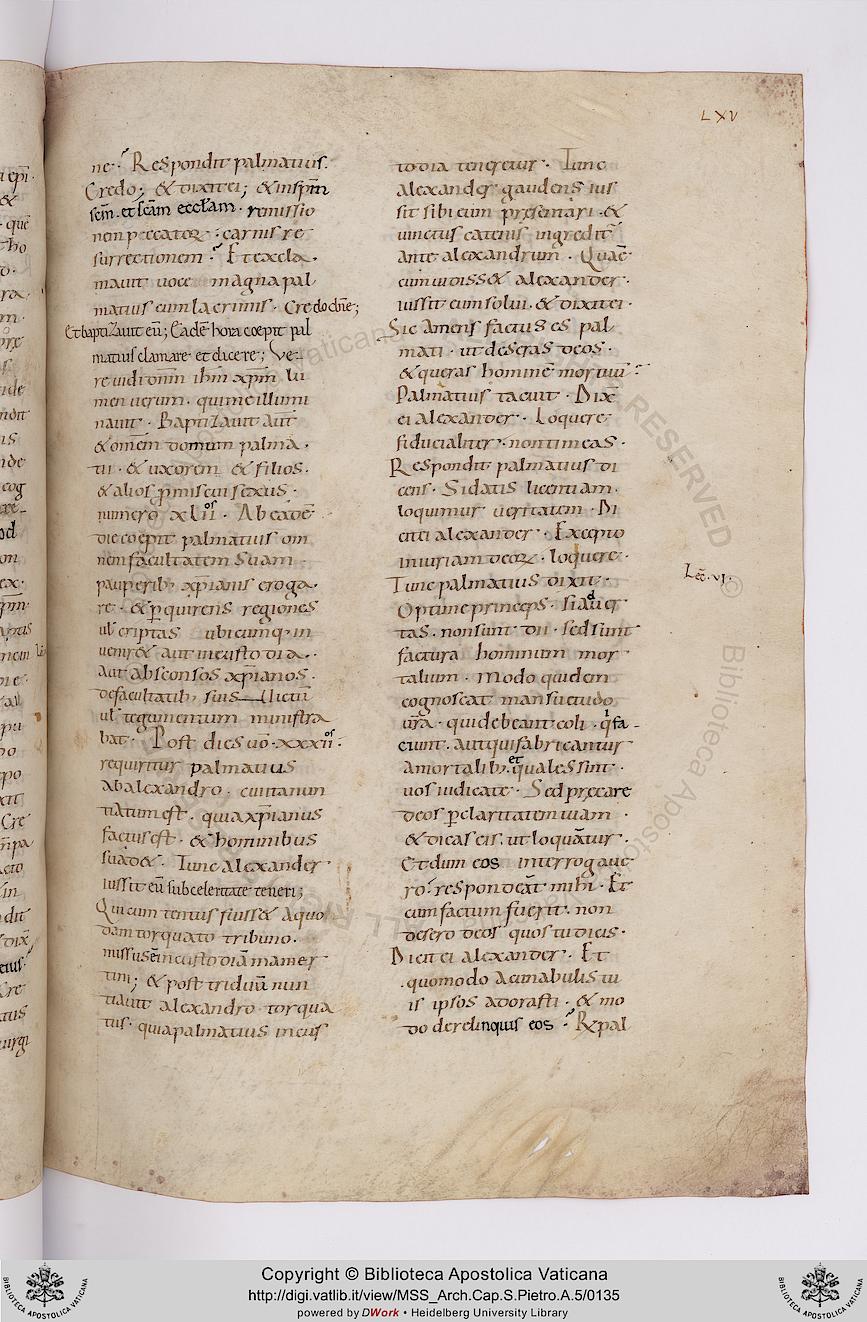 LXV
ne. Respondit palmatius.
Credo; & dixit ei; & in spm̄
scm̄. et scam̄ eccl̄am. remissio
nem peccatoꝝ. carnis re
surrectionem. Et excla.
mavit voce magna pal
matius cum lacrimis. Credo dn̄e;
Et baptizavit eū; Eadē hora coepit pal
matius clamare et dicere; Ve-
re vidi dn̄m ihm̄ xp̄m lu
men verum. qui me illumi
navit. Baptizavit aut̄
& omēm domum palma.
tii. & uxorem & filios.
& alios ꝓmiscui sexus.
numero xlii os. Ab eadē
die coepit palmatius om
nem facultatem suam.
pauperibꝫ xp̄ianis eroga.
re. & ꝑquirens regiones
ul̄ criptas ubicumq; in
venir& aut in custodia.
aut absconsos xp̄ianos.
de facultatibꝫ suis victū
ul̄ tegumentum ministra
bat. Post dies ūo. xxxii os.
requiritur palmatius
ab alexandro. cui nun
tiatum est. quia xp̄ianus
factus est. & hominibus
suad&. Tunc alexander
iussit eū sub celeritate teneri;
Qui cum tentus fuiss& a quo
dam torquato tribuno.
missus ē in custodiā mamer
tini; & post triduū nun
tiavit alexandro torqua
tus. quia palmatius in cus
todia teneretur. Tunc
alexander gaudens ius
sit sibi eum presentari. &
vinctus catenis ingredit̄
ante alexandrum. Quē
cum vidiss& alexander.
iussit eum solvi. & dixit ei.
Sic amens factus es pal
mati. ut deseras deos.
& queras hominē mortuū?
Palmatius tacuit. Dix̄
ei alexander. Loquere
fiducialiter. non timeas.
Respondit palmatius di
cens. Si datis licentiam.
loquimur veritatem. Di
cit ei alexander. Excepto
iniuriam deoꝝ. loquere.
Tunc palmatius dixit.
Lec̄. vi.
Optime princeps. si adver
tas. non sunt dii. sed sunt
factura hominum mor
talium. Modo quidem
cognoscat mansuetudo
ur̄a. qui debeant coli. qi fa-
ciunt. aut qui fabricantur
a mortalibꝫ. et quales sint.
vos iudicate. Sed precare
deos ꝑ claritatem tuam.
& dicas eis. ut loquātur.
Et dum eos interrogave
ro. respondeāt mihi. Et
cum factum fuerit. non
desero deos quos tu dicis.
Dicit ei alexander. Et
quomodo a cunabulis tu
is ipsos adorasti. & mo
do derelinquis eos? R& pal
Copyright © Biblioteca Apostolica Vaticana
http://digi.vatlib.it/view/MSS_Arch.Cap.S.Pietro.A.5/0135
powered by DWork • Heidelberg University Library